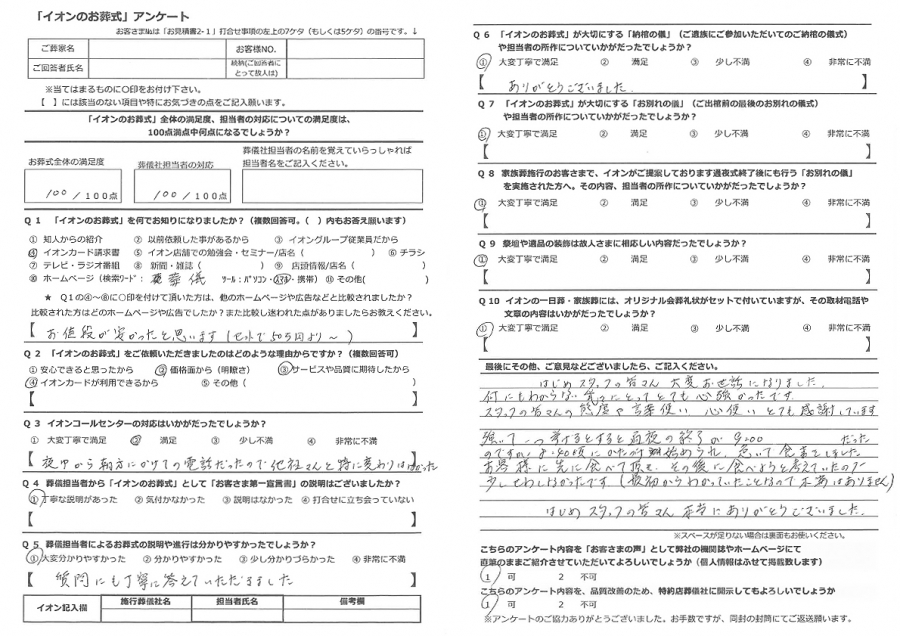 「イオンのお葬式」アンケート
お客さま№は「お見積書2-1」打合せ事項の左上の7ケタ（もしくは5ケタ）の番号です。↓
ご葬家名
お客様NO.
ご回答者氏名
続柄(ご回答者にとって故人は)
※当てはまるものに○印をお付け下さい。
【　】には該当のない項目や特にお気づきの点をご記入願います。
「イオンのお葬式」全体の満足度、担当者の対応についての満足度は、
100点満点中何点になるでしょうか？
お葬式全体の満足度
葬儀社担当者の対応
葬儀社担当者の名前を覚えていらっしゃれば
担当者名をご記入ください。
100 / 100点
100 / 100点
Q 1 「イオンのお葬式」を何でお知りになりましたか？（複数回答可。（　）内もお答え願います）
① 知人からの紹介　② 以前依頼した事があるから　③ イオングループ従業員だから
④ イオンカード請求書　⑤ イオン店舗での勉強会・セミナー/店名（　）⑥ チラシ
⑦ テレビ・ラジオ番組　⑧ 新聞・雑誌（　）⑨ 店頭情報/店名（　）
⑩ ホームページ（検索ワード：　葬儀　ツール：パソコン・スマホ・携帯）⑪ その他（　）
★ Q1の④～⑧に○印を付けて頂いた方は、他のホームページや広告などと比較されましたか？
比較された方はどのホームページや広告でしたか？また比較し迷われた点がありましたらお教えください。
【 お値段が安かったと思います（セットで50万円より～） 】
Q 2 「イオンのお葬式」をご依頼いただきましたのはどのような理由からですか？（複数回答可）
① 安心できると思ったから　② 価格面から（明瞭さ）　③ サービスや品質に期待したから
④ イオンカードが利用できるから　⑤ その他（　）
【　】
Q 3 イオンコールセンターの対応はいかがだったでしょうか？
① 大変丁寧で満足　② 満足　③ 少し不満　④ 非常に不満
【 夜中から朝方にかけての電話だったので他社さんと特に変わりはなかった
Q 4 葬儀担当者から「イオンのお葬式」として「お客さま第一宣言書」の説明はございましたか？
① 丁寧な説明があった　② 気付かなかった　③ 説明はなかった　④ 打合せに立ち会っていない
【　】
Q 5 葬儀担当者によるお葬式の説明や進行は分かりやすかったでしょうか？
① 大変分かりやすかった　② 分かりやすかった　③ 少し分かりづらかった　④ 非常に不満
【 質問にも丁寧に答えていただきました 】
イオン記入欄　施行葬儀社名　担当者氏名　備考欄
Q 6 「イオンのお葬式」が大切にする「納棺の儀」（ご遺族にご参加いただいてのご納棺の儀式）
や担当者の所作についていかがだったでしょうか？
① 大変丁寧で満足　② 満足　③ 少し不満　④ 非常に不満
【 ありがとうございました. 】
Q 7 「イオンのお葬式」が大切にする「お別れの儀」（ご出棺前の最後のお別れの儀式）
や担当者の所作についていかがだったでしょうか？
① 大変丁寧で満足　② 満足　③ 少し不満　④ 非常に不満
【　】
Q 8 家族葬施行のお客さまで、イオンがご提案しております通夜式終了後にも行う「お別れの儀」
を実施された方へ。その内容、担当者の所作についていかがだったでしょうか？
① 大変丁寧で満足　② 満足　③ 少し不満　④ 非常に不満
【　】
Q 9 祭壇や遺品の装飾は故人さまに相応しい内容だったでしょうか？
① 大変丁寧で満足　② 満足　③ 少し不満　④ 非常に不満
【　】
Q 10 イオンの一日葬・家族葬には、オリジナル会葬礼状がセットで付いていますが、その取材電話や
文章の内容はいかがだったでしょうか？
① 大変丁寧で満足　② 満足　③ 少し不満　④ 非常に不満
【　】
最後にその他、ご意見などございましたら、ご記入ください。
はじめスタッフの皆さん 大変お世話になりました.
何にもわからない にとってとても心強かったです.
スタッフの皆さんの態度や言葉使い、心使い とても感謝しています
強いて一つ挙げるとすると通夜の終了が9:00 だった
のですが, かたづけ始められ, 急いで食事をしました
お客様に先に食べて頂き, その後に食べようと考えていたので
少しせわしなかったです（最初からわかっていたことなので不満はありません）
はじめスタッフの皆さん 本当にありがとうございました.
※スペースが足りない場合は裏面もお使いください。
こちらのアンケート内容を「お客さまの声」として弊社の機関誌やホームページにて
直筆のままご紹介させていただいてよろしいでしょうか（個人情報はふせて掲載致します）
1 可　2 不可
こちらのアンケート内容を、品質改善のため、特約店葬儀社に開示してもよろしいでしょうか
1 可　2 不可
※アンケートのご協力ありがとうございました。お手数ですが、同封の封筒にてご返送願います。